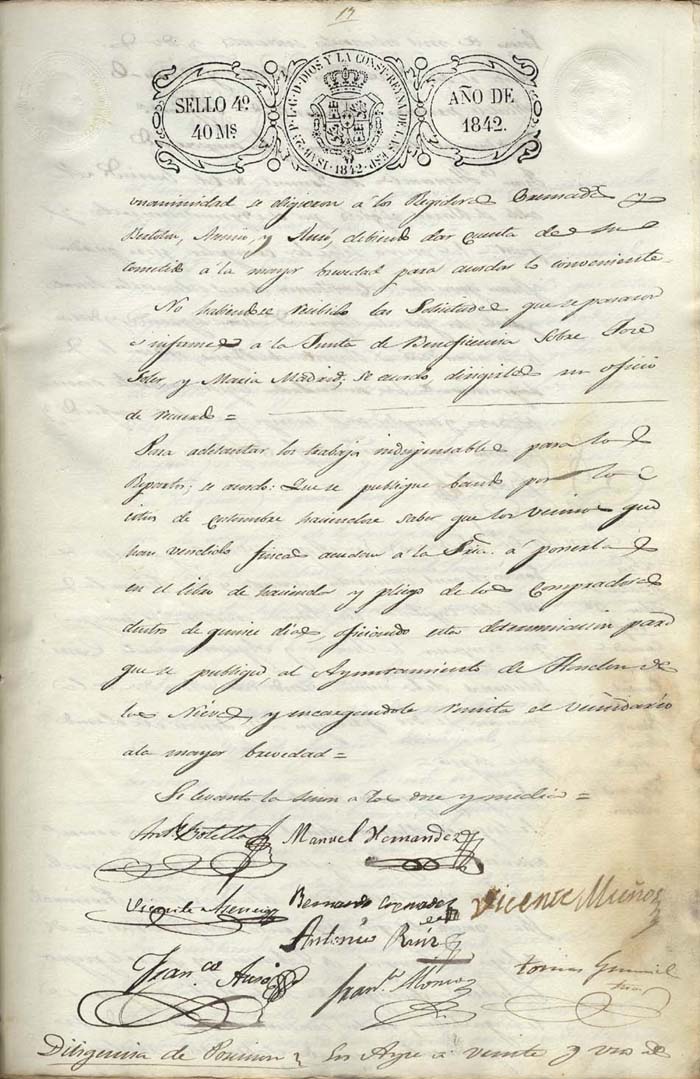 17
SELLO 4º
40 Ms
ISAB. 2ª P. L. G. D. DIOS Y LA CONST. REYNA DE LAS ESP. 1842
AÑO DE
1842.
unanimidad se eligieron a los Regidores y
Botella, y debiendo dar cuenta de su
cometido á la mayor brevedad para acordar lo conveniente
No habiendose recibido las Solicitudes que se pasaron
á informes a la Junta de Beneficencia sobre Jose
Soler, y Maria Madrid; se acordó, dirigirle un oficio
de recuerdo =
Para adelantar los trabajos indispensables para los
Repartos; se acordó: Que se publique bando por los
sitios de costumbre haciendose saber que los vecinos que
han vendido fincas acudan a la Sria. á ponerlas
en el libro de hacienda y pliego de los Compradores
dentro de quince dias, oficiando esta determinacion para
que se publique, al Ayuntamiento de Hondon de
los Nieves, y encargandole remita el vecindario
a la mayor brevedad =
Se levantó la sesion a las doce y media =
Anto. Botella
Manuel Hernandez
Vicente
Bernardo
Vicente Muñoz
Antonio Ruiz
Franco.
Franco.
Tomas
Diligencia de Posesion En Aspe á veinte y uno de